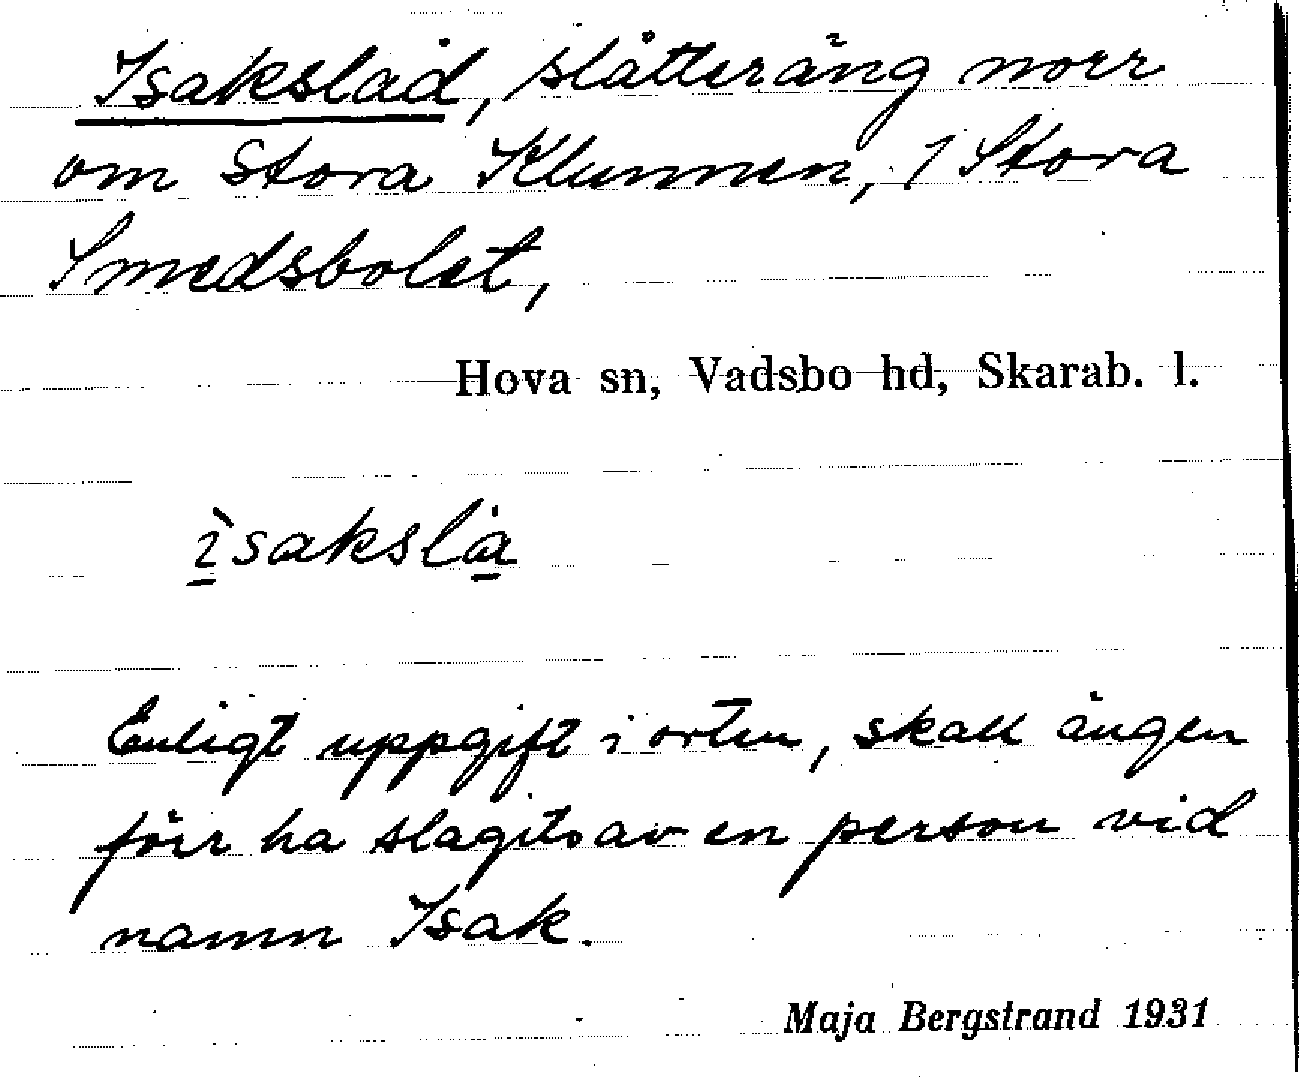 Isakslåd, slåtteräng norr
om Stora Klunnen, 1 Stora
Smedsbolet,
Hova sn, Vadsbo hd, Skarab. l.
ìsakslȧ
Enligt uppgift i orten, skall ängen
förr ha slagits av en person vid
namn Isak.
Maja Bergstrand 1931